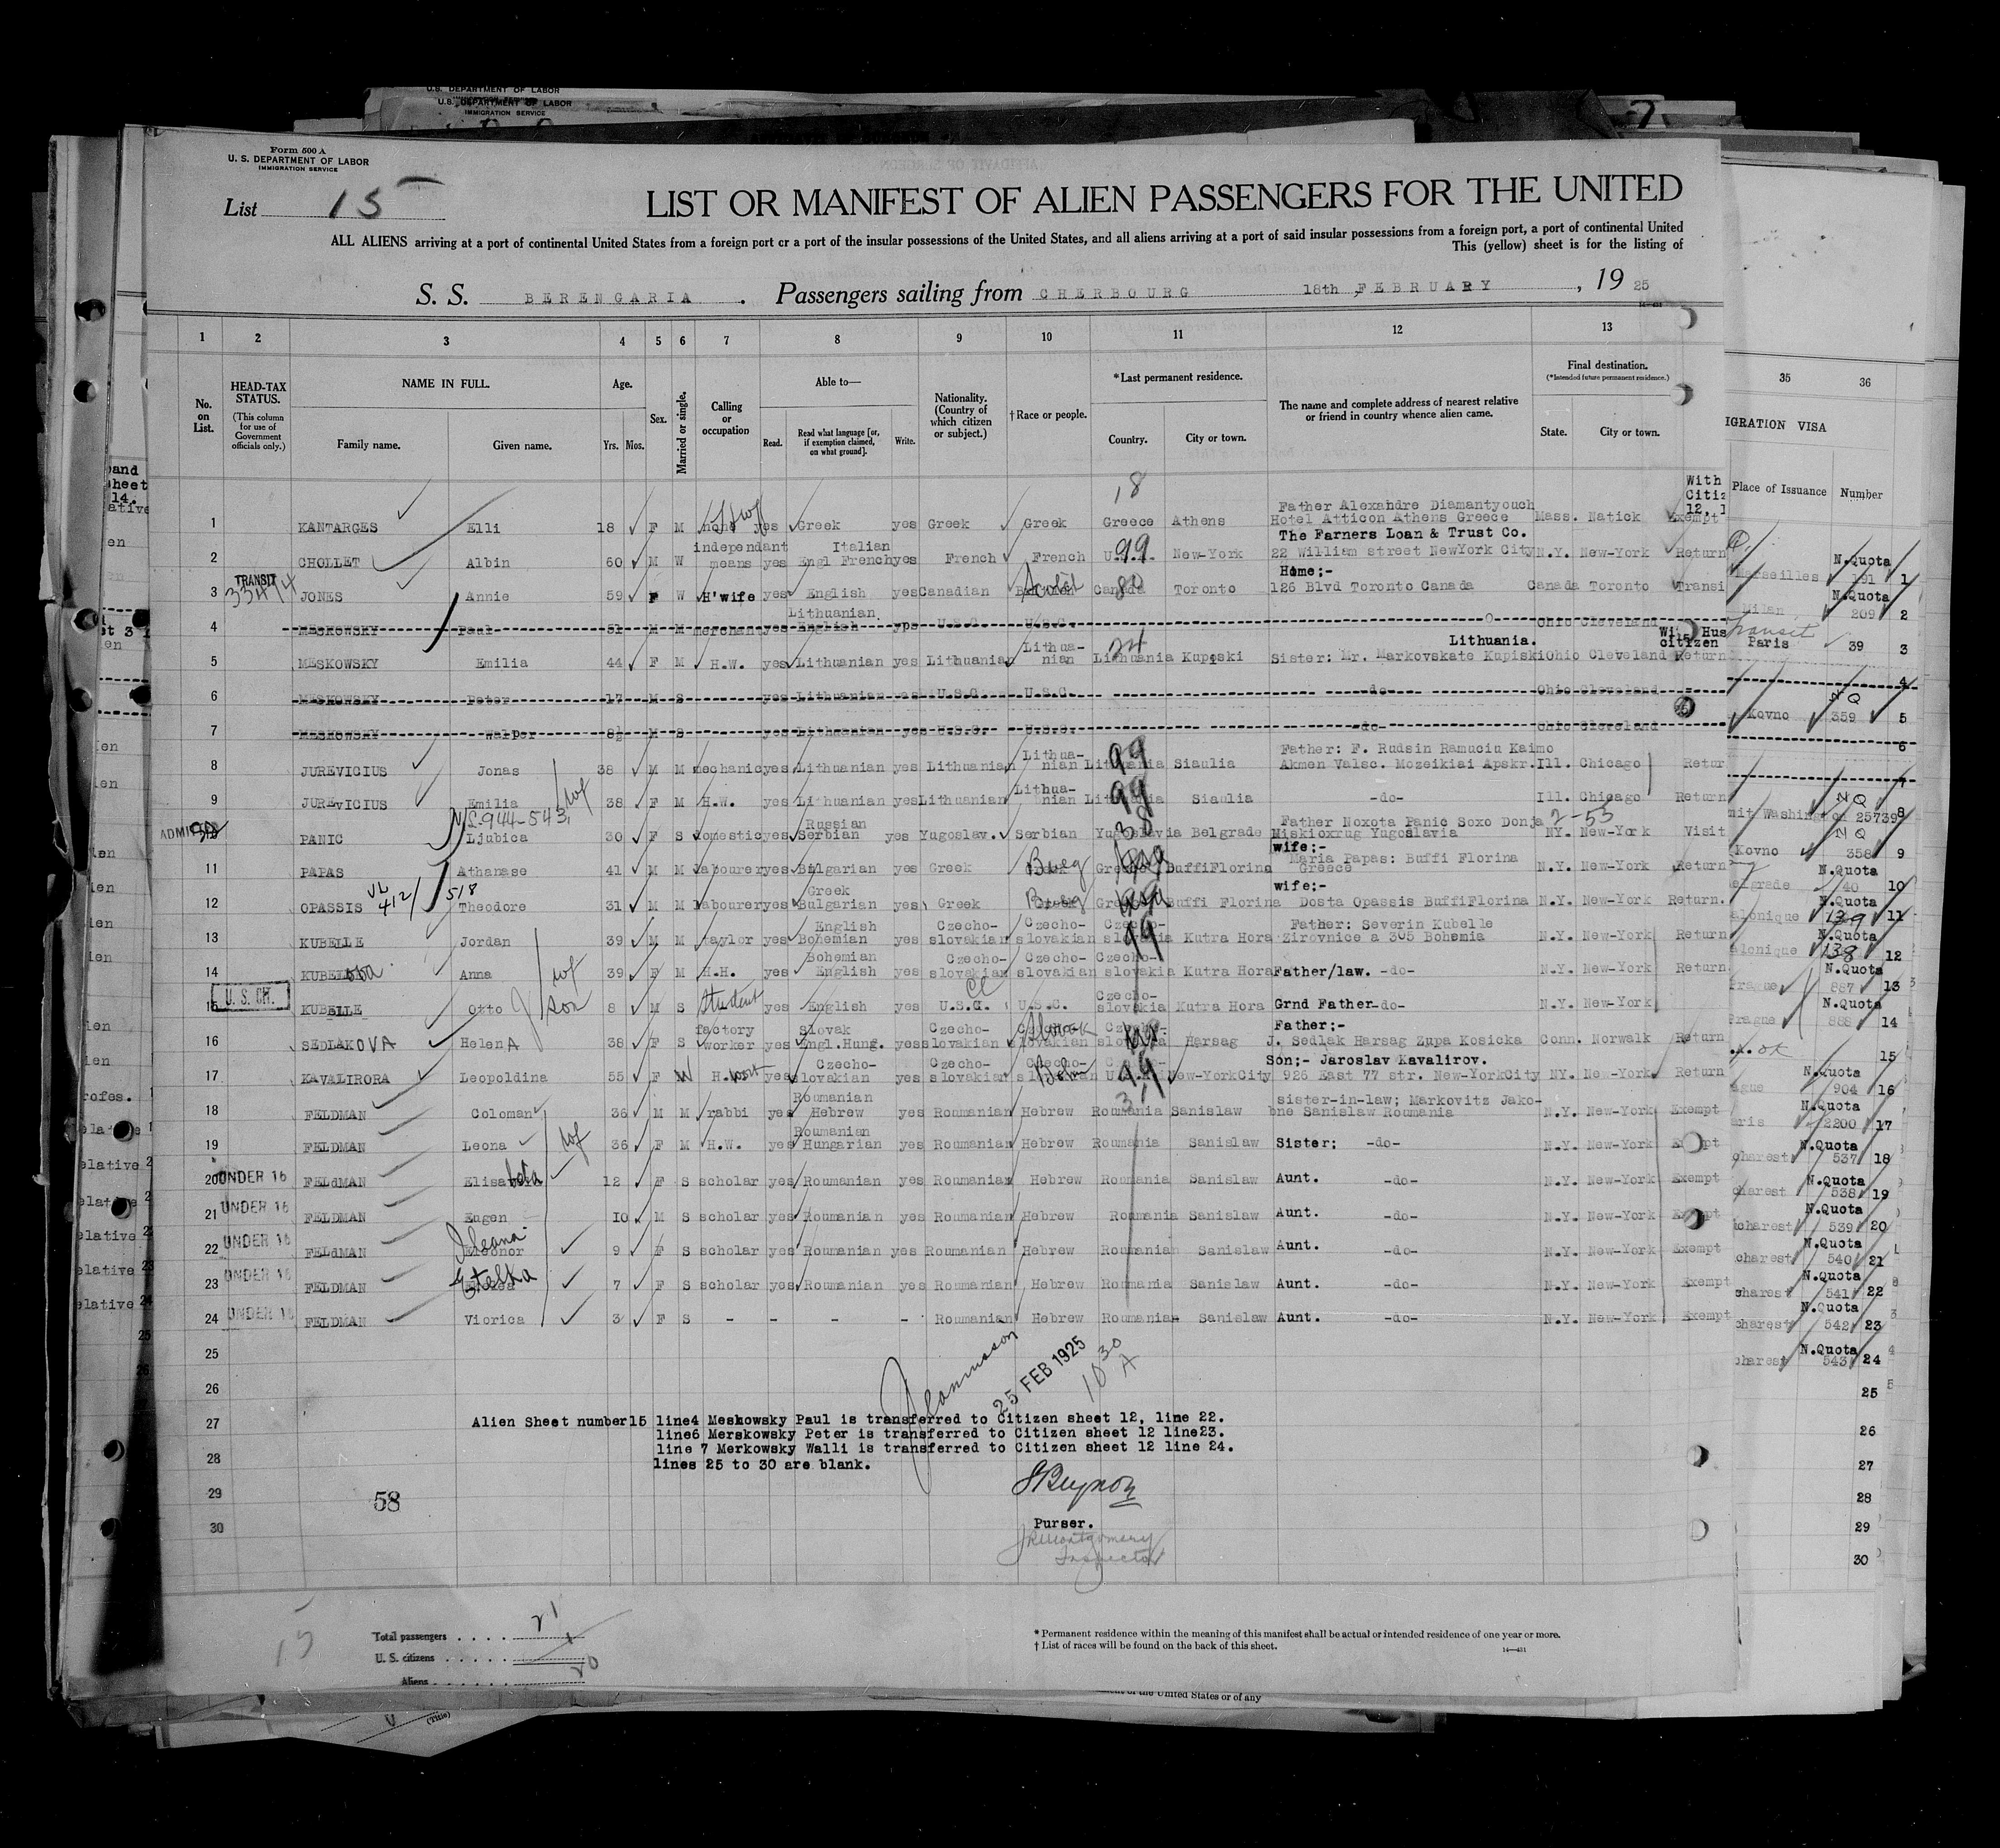 U.S. DEPARTMENT OF LABOR
U.S. DEPARTMENT OF LABOR
IMMIGRATION SERVICE
Form 500 A
U. S. DEPARTMENT OF LABOR
IMMIGRATION SERVICE
List 15
LIST OR MANIFEST OF ALIEN PASSENGERS FOR THE UNITED
ALL ALIENS arriving at a port of continental United States from a foreign port or a port of the insular possessions of the United States, and all aliens arriving at a port of said insular possessions from a foreign port, a port of continental United
This (yellow) sheet is for the listing of
S. S. BERENGARIA . Passengers sailing from CHERBOURG 18th FEBRUARY , 19 25
1 2 3 4 5 6 7 8 9 10 11 12 13 35 36
No. on List. HEAD-TAX STATUS. (This column for use of Government officials only.) NAME IN FULL. Family name. Given name. Age. Yrs. Mos. Sex. Married or single. Calling or occupation Able to— Read. Read what language [or, if exemption claimed, on what ground]. Write. Nationality. (Country of which citizen or subject.) † Race or people. *Last permanent residence. Country. City or town. The name and complete address of nearest relative or friend in country whence alien came. Final destination. (*Intended future permanent residence.) State. City or town.
IGRATION VISA
Place of Issuance Number
18
Father Alexandre Diamantyouch
1 KANTARGES Elli 18 F M none yes Greek yes Greek Greek Greece Athens Hotel Atticon Athens Greece Mass. Natick Exempt
independant Italian The Farners Loan & Trust Co.
2 CHOLLET Albin 60 M W means yes Engl French yes French French 99 New-York 22 William street NewYork City N.Y. New-York Return
TRANSIT Home;-
3 JONES Annie 59 F W H'wife yes English yes Canadian Canada Toronto 126 Blvd Toronto Canada Canada Toronto Transi
Lithuanian
4 MESKOWSKY Paul 51 M M merchant yes English yes U.S.C. U.S.C. Ohio Cleveland
Lithua- 24 Lithuania.
5 MESKOWSKY Emilia 44 F M H.W. yes Lithuanian yes Lithuania nian Lithuania Kupiski Sister: Mr. Markovskate Kupiski Ohio Cleveland Return
6 MESKOWSKY Peter 17 M S yes Lithuanian yes U.S.C. U.S.C. -do- Ohio Cleveland
7 MESKOWSKY Walper 8½ M S yes Lithuanian yes U.S.C. U.S.C. -do- Ohio Cleveland
Lithua- 99 Father: F. Rudsin Ramuciu Kaimo
8 JUREVICIUS Jonas 38 M M mechanic yes Lithuanian yes Lithuanian nian Lithuania Siaulia Akmen Valsc. Mozeikiai Apskr. Ill. Chicago Retur
Lithua- 99
9 JUREVICIUS Emilia wf 38 F M H.W. yes Lithuanian yes Lithuanian nian Lithuania Siaulia -do- Ill. Chicago Return
ADMITTED Russian 38 Father Noxota Panic Soxo Donja 2-53
PANIC Ljubica 30 F S domestic yes Serbian yes Yugoslav. Serbian Yugoslavia Belgrade Miskioxrug Yugoslavia NY. New-York Visit
wife;-
Maria Papas: Buffi Florina
11 PAPAS Athanase 41 M M labourer yes Bulgarian yes Greek Greece Buffi Florina Greece N.Y. New-York Return
412/518 Greek wife;-
12 OPASSIS Theodore 31 M M labourer yes Bulgarian yes Greek Greece Buffi Florina Dosta Opassis BuffiFlorina N.Y. New-York Return.
English Czecho- Czecho- Czecho- Father: Severin Kubelle
13 KUBELLE Jordan 39 M M taylor yes Bohemian yes slovakian slovakian slovakia Kutra Hora Zirovnice a 305 Bohemia N.Y. New-York Return
Bohemian Czecho- Czecho- Czecho-
14 KUBELova Anna wf 39 F M H.H. yes English yes slovakian slovakian slovakia Kutra Hora Father/law. -do- N.Y. New-York Return
U. S. Czecho-
15 KUBELLE Otto son 8 M S Student yes English yes U.S.C. U.S.C. slovakia Kutra Hora Grnd Father-do- N.Y. New-York
factory Slovak Czecho- Slovak Father;-
16 SEDLAKOVA HelenA 38 F S worker yes Engl.Hung. yes slovakian slovakian slovakia Harsag J. Sedlak Harsag Zupa Kosicka Conn. Norwalk Return
Czecho- Czecho- Son;- Jaroslav Kavalirov.
17 KAVALIRORA Leopoldina 55 F W yes slovakian yes slovakian New-YorkCity 926 East 77 str. New-YorkCity NY. New-York Return
Roumanian sister-in-law; Markovitz Jako-
18 FELDMAN Coloman 36 M M rabbi yes Hebrew yes Roumanian Hebrew Roumania Sanislaw bne Sanislaw Roumania N.Y. New-York Exempt
Roumanian
19 FELDMAN Leona wf 36 F M H.W. yes Hungarian yes Roumanian Hebrew Roumania Sanislaw Sister; -do- N.Y. New-York Exempt
20 UNDER 16 FELdMAN Elisabeta 12 F S scholar yes Roumanian yes Roumanian Hebrew Roumania Sanislaw Aunt. -do- N.Y. New-York Exempt
21 UNDER 16 FELDMAN Eugen 10 M S scholar yes Roumanian yes Roumanian Hebrew Roumania Sanislaw Aunt. -do- N.Y. New-York Exempt
Ileana
22 UNDER 16 FELdMAN Eleonor 9 F S scholar yes Roumanian yes Roumanian Hebrew Roumanian Sanislaw Aunt. -do- N.Y. New-York Exempt
23 UNDER 16 FELDMAN Etelka 7 F S scholar yes Roumanian yes Roumanian Hebrew Roumania Sanislaw Aunt. -do- N.Y. New-York Exempt
24 UNDER 16 FELDMAN Viorica 3 F S - - - - Roumanian Hebrew Roumanian Sanislaw Aunt. -do- N.Y. New-York Exempt
25
26
25 FEB 1925 10 30 A
27
Alien Sheet number 15 line4 Meskowsky Paul is transferred to Citizen sheet 12, line 22.
line6 Merskowsky Peter is transferred to Citizen sheet 12 line23.
28
line 7 Merkowsky Walli is transferred to Citizen sheet 12 line 24.
lines 25 to 30 are blank.
29
58
30
Purser.
JRMontgomery
Inspector
N.Quota 191 1
N.Quota
Milan 209 2
Transit
Paris 39 3
4
Kovno 359 5
6
7
8
mit Washington 25739
Kovno 358 9
N.Quota
elgrade 40 10
N.Quota
alonique 139 11
N.Quota
alonique 138 12
N.Quota
Prague 887 13
N.Quota
Prague 888 14
15
N.Quota
ague 904 16
N.Quota
aris 2200 17
N.Quota
charest 537 18
N.Quota
charest 538 19
N.Quota
charest 539 20
N.Quota
charest 540 21
N.Quota
charest 541 22
N.Quota
charest 542 23
N.Quota
charest 543 24
25
26
27
28
29
30
15
Total passengers . . . . 21
U. S. citizens . . . . . 1
Aliens . . . . . . 20
* Permanent residence within the meaning of this manifest shall be actual or intended residence of one year or more.
† List of races will be found on the back of this sheet.
14—431
of the United States or of any
(Title)